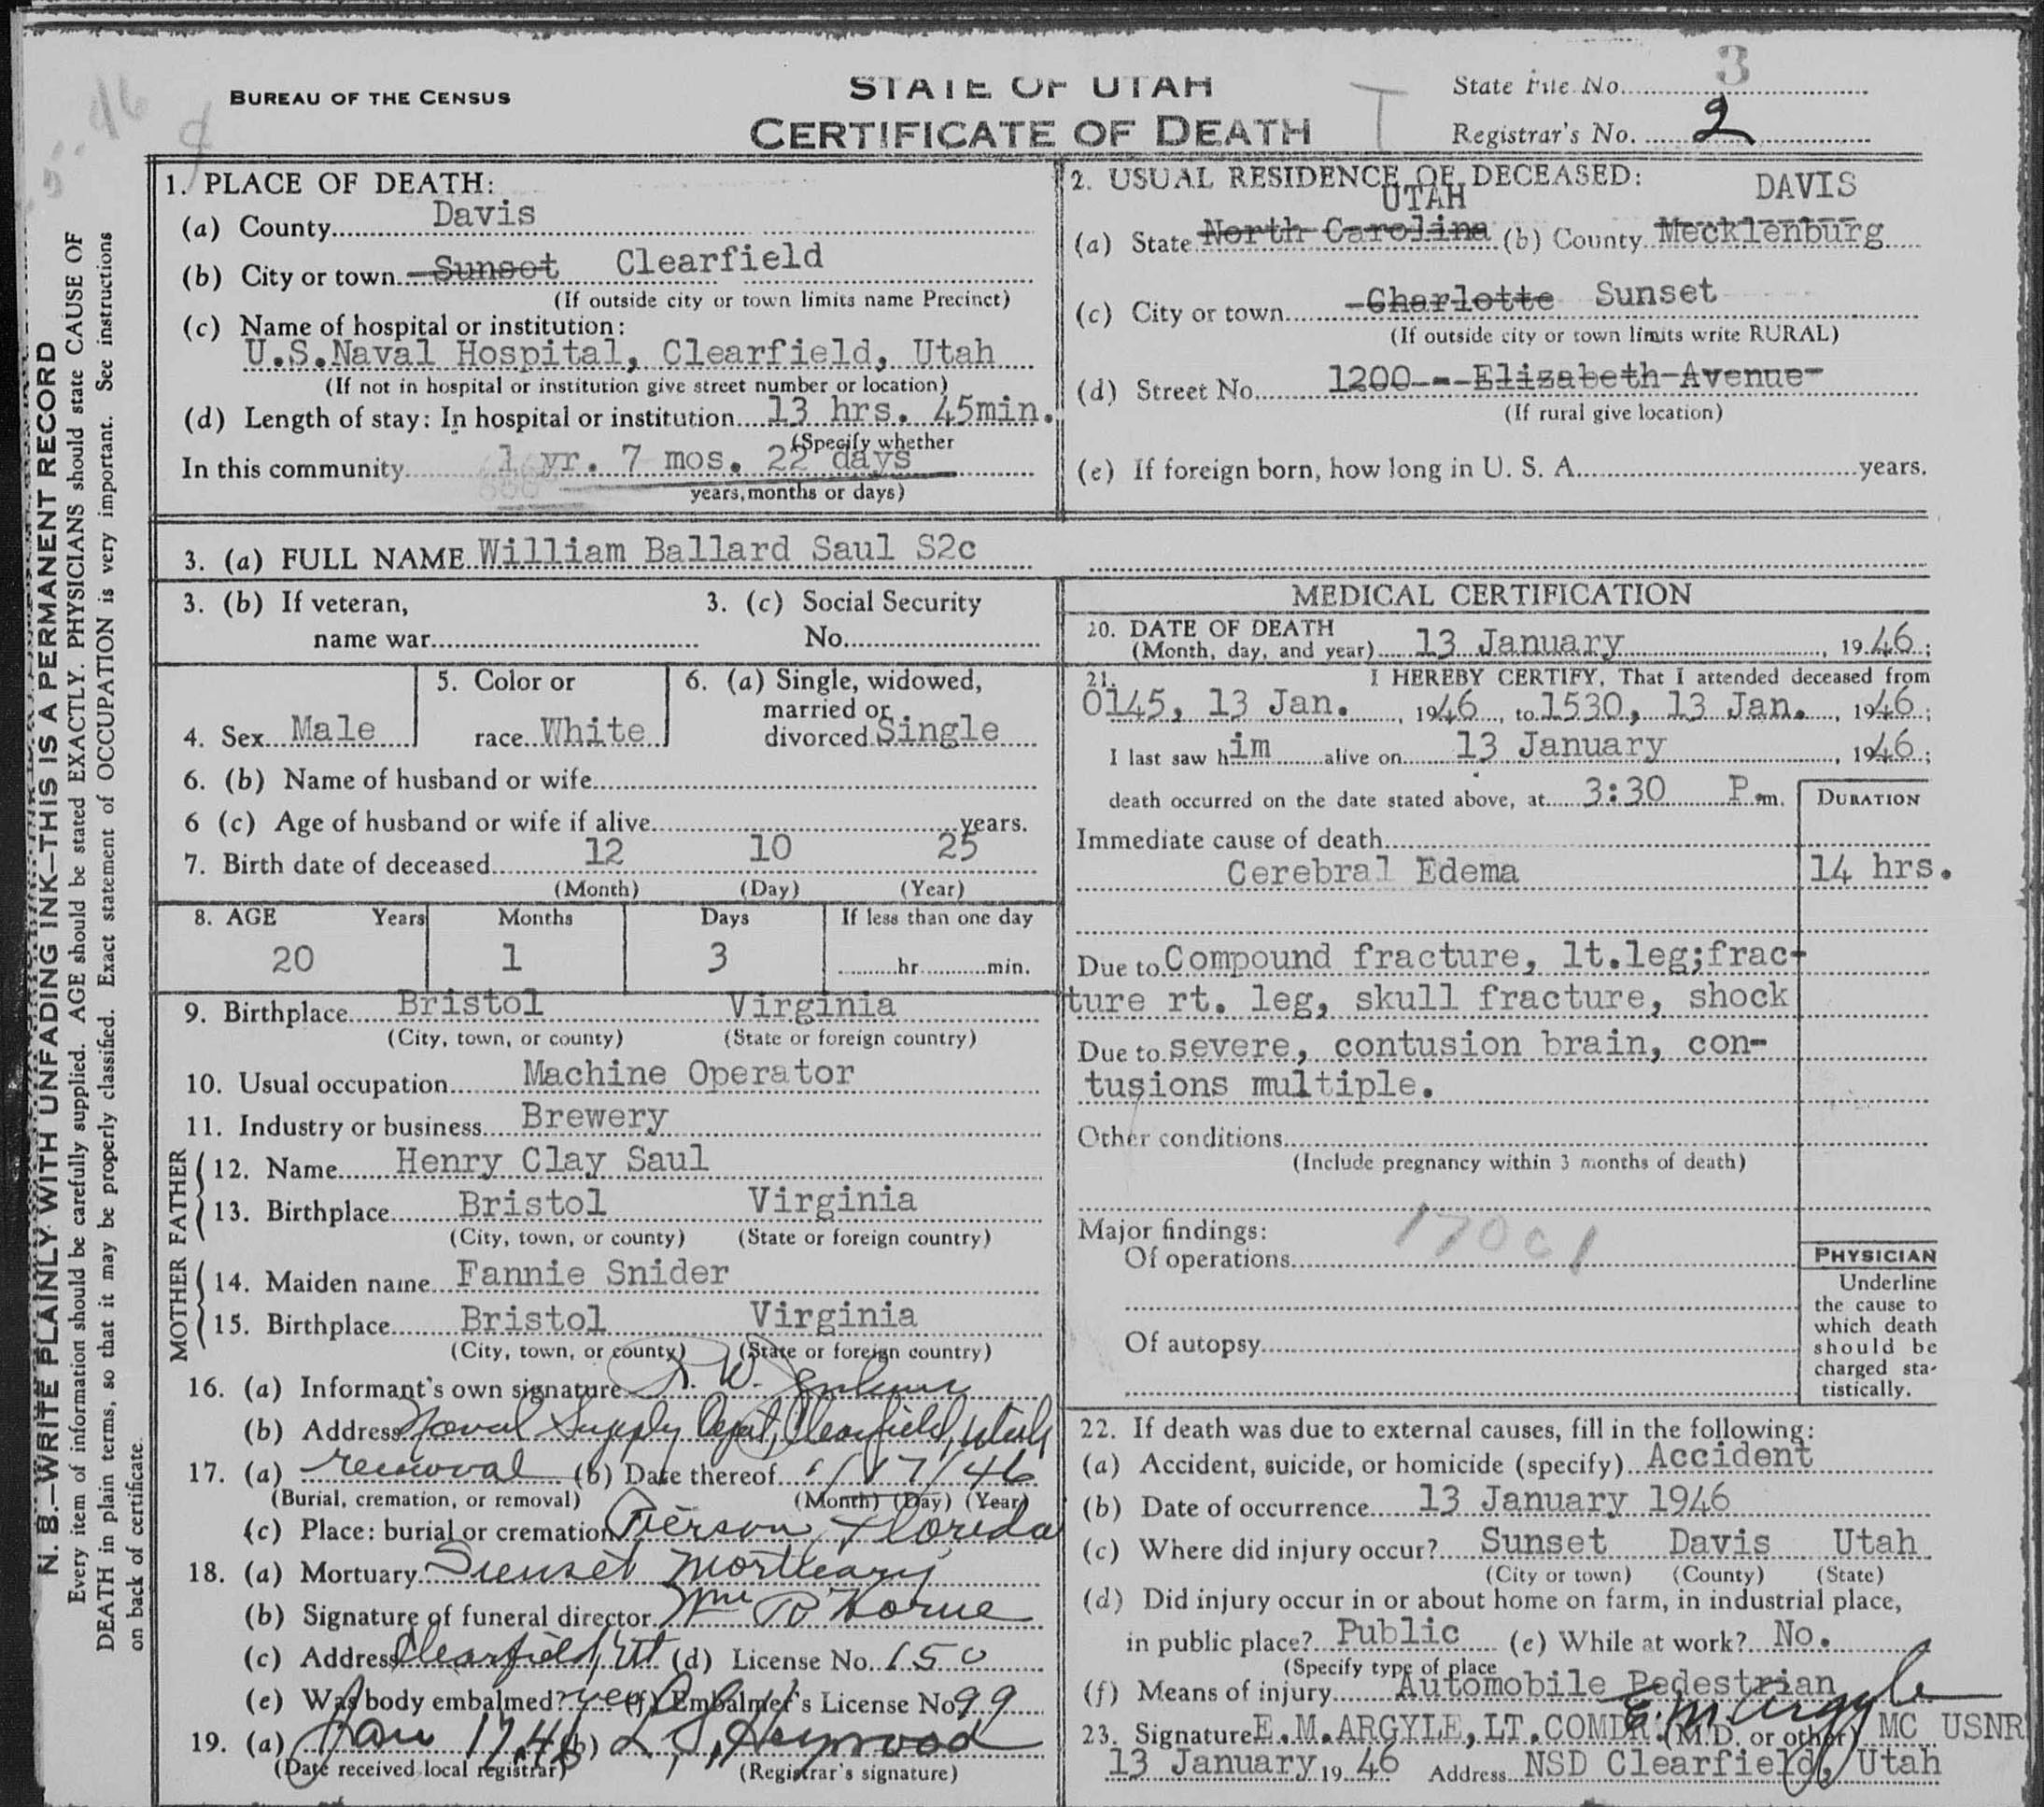 BUREAU OF THE CENSUS
STATE OF UTAH
CERTIFICATE OF DEATH
State File No. 3
Registrar's No. 2
1. PLACE OF DEATH:
(a) County Davis
(b) City or town Sunset Clearfield
(If outside city or town limits name Precinct)
(c) Name of hospital or institution:
U.S.Naval Hospital, Clearfield, Utah
(If not in hospital or institution give street number or location)
(d) Length of stay: In hospital or institution 13 hrs. 45min.
(Specify whether
In this community 1 yr. 7 mos. 22 days
years, months or days)
2. USUAL RESIDENCE OF DECEASED:
UTAH DAVIS
(a) State North Carolina (b) County Mecklenburg
(c) City or town Charlotte Sunset
(If outside city or town limits write RURAL)
(d) Street No. 1200 - Elizabeth Avenue
(If rural give location)
(e) If foreign born, how long in U. S. A. years.
3. (a) FULL NAME William Ballard Saul S2c
3. (b) If veteran, 3. (c) Social Security
name war No.
4. Sex Male
5. Color or
race White
6. (a) Single, widowed,
married or
divorced Single
6. (b) Name of husband or wife
6 (c) Age of husband or wife if alive years.
7. Birth date of deceased 12 10 25
(Month) (Day) (Year)
8. AGE Years Months Days If less than one day
20 1 3 hr. min.
9. Birthplace Bristol Virginia
(City, town, or county) (State or foreign country)
10. Usual occupation Machine Operator
11. Industry or business Brewery
FATHER
12. Name Henry Clay Saul
13. Birthplace Bristol Virginia
(City, town, or county) (State or foreign country)
MOTHER
14. Maiden name Fannie Snider
15. Birthplace Bristol Virginia
(City, town, or county) (State or foreign country)
16. (a) Informant's own signature
(b) Address Naval Supply Depot, Clearfield, Utah
17. (a) removal (b) Date thereof 1/17/46
(Burial, cremation, or removal) (Month) (Day) (Year)
(c) Place: burial or cremation Pierson, Florida
18. (a) Mortuary Sunset Mortuary
(b) Signature of funeral director Wm
(c) Address Clearfield, Ut (d) License No. 150
(e) Was body embalmed? yes (f) Embalmer's License No 99
19. (a) Jan 17, 46 (b)
(Date received local registrar) (Registrar's signature)
MEDICAL CERTIFICATION
20. DATE OF DEATH
(Month, day, and year) 13 January, 19 46;
21. I HEREBY CERTIFY, That I attended deceased from
0145, 13 Jan., 1946, to 1530, 13 Jan., 1946;
I last saw him alive on 13 January, 1946;
death occurred on the date stated above, at 3:30 P.m.
DURATION
Immediate cause of death
Cerebral Edema 14 hrs.
Due to Compound fracture, lt.leg;frac-
ture rt. leg, skull fracture, shock
Due to severe, contusion brain, con-
tusions multiple.
Other conditions
(Include pregnancy within 3 months of death)
Major findings:
Of operations
Of autopsy
PHYSICIAN
Underline
the cause to
which death
should be
charged sta-
tistically.
22. If death was due to external causes, fill in the following:
(a) Accident, suicide, or homicide (specify) Accident
(b) Date of occurrence 13 January 1946
(c) Where did injury occur? Sunset Davis Utah
(City or town) (County) (State)
(d) Did injury occur in or about home on farm, in industrial place,
in public place? Public (e) While at work? No.
(Specify type of place
(f) Means of injury Automobile Pedestrian
23. Signature E.M.ARGYLE,LT.COMDR. (M.D. or other) MC USNR
13 January, 19 46 Address NSD Clearfield, Utah
N. B.—WRITE PLAINLY WITH UNFADING INK—THIS IS A PERMANENT RECORD
Every item of information should be carefully supplied. AGE should be stated EXACTLY. PHYSICIANS should state CAUSE OF
DEATH in plain terms, so that it may be properly classified. Exact statement of OCCUPATION is very important. See instructions
on back of certificate.